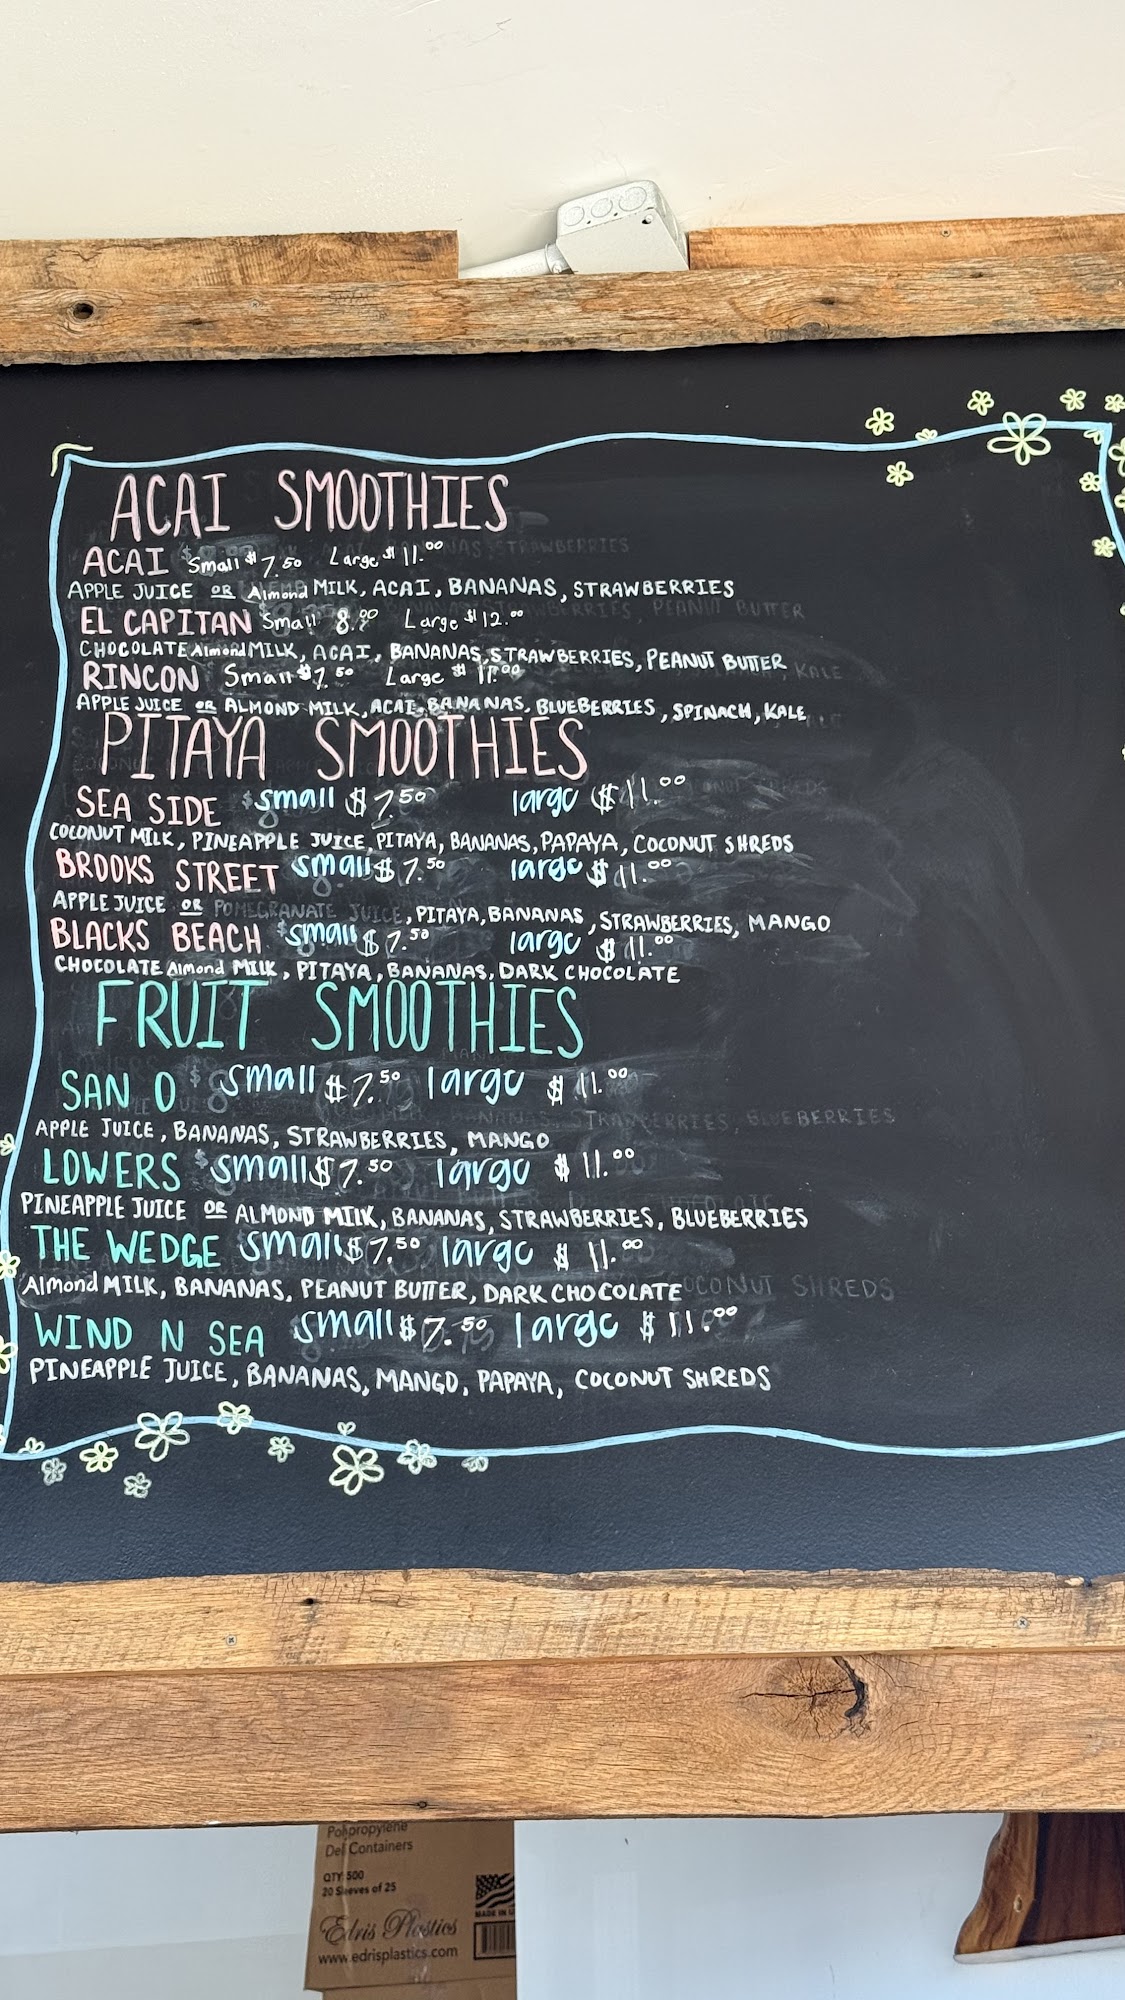 ACAI SMOOTHIES
ACAI Small $7.50 Large $11.00
APPLE JUICE OR Almond MILK, ACAI, BANANAS, STRAWBERRIES
EL CAPITAN Small 8.00 Large $12.00
CHOCOLATE Almond MILK, ACAI, BANANAS, STRAWBERRIES, PEANUT BUTTER
RINCON Small $7.50 Large $11.00
APPLE JUICE OR ALMOND MILK, ACAI, BANANAS, BLUEBERRIES, SPINACH, KALE
PITAYA SMOOTHIES
SEA SIDE small $7.50 large $11.00
COCONUT MILK, PINEAPPLE JUICE, PITAYA, BANANAS, PAPAYA, COCONUT SHREDS
BROOKS STREET small $7.50 large $11.00
APPLE JUICE OR POMEGRANATE JUICE, PITAYA, BANANAS, STRAWBERRIES, MANGO
BLACKS BEACH small $7.50 large $11.00
CHOCOLATE Almond MILK, PITAYA, BANANAS, DARK CHOCOLATE
FRUIT SMOOTHIES
SAN O small $7.50 large $11.00
APPLE JUICE, BANANAS, STRAWBERRIES, MANGO
LOWERS small $7.50 large $11.00
PINEAPPLE JUICE OR ALMOND MILK, BANANAS, STRAWBERRIES, BLUEBERRIES
THE WEDGE small $7.50 large $11.00
Almond MILK, BANANAS, PEANUT BUTTER, DARK CHOCOLATE
WIND N SEA small $7.50 large $11.00
PINEAPPLE JUICE, BANANAS, MANGO, PAPAYA, COCONUT SHREDS
Polypropylene
Deli Containers
QTY 500
20 Sleeves of 25
MADE IN U
Edris Plastics
www.edrisplastics.com